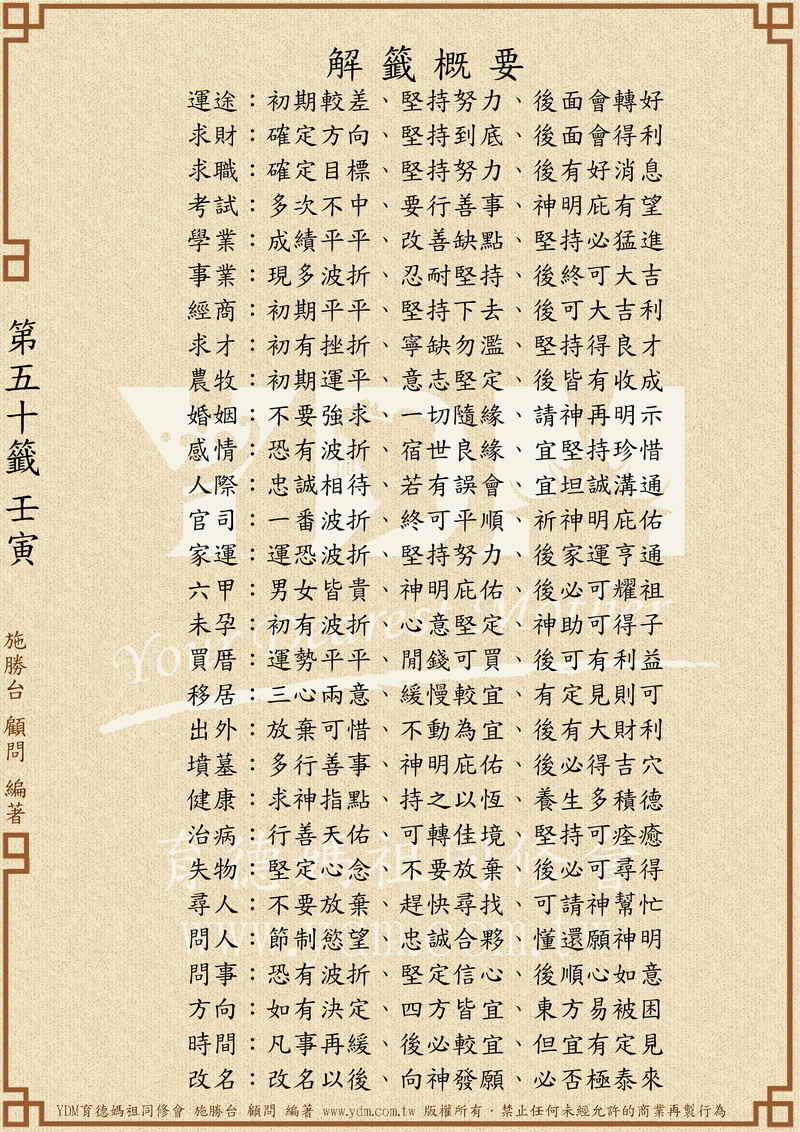 解籤概要
運途：初期較差、堅持努力、後面會轉好
求財：確定方向、堅持到底、後面會得利
求職：確定目標、堅持努力、後有好消息
考試：多次不中、要行善事、神明庇有望
學業：成績平平、改善缺點、堅持必猛進
事業：現多波折、忍耐堅持、後終可大吉
經商：初期平平、堅持下去、後可大吉利
求才：初有挫折、寧缺勿濫、堅持得良才
農牧：初期運平、意志堅定、後皆有收成
婚姻：不要強求、一切隨緣、請神再明示
感情：恐有波折、宿世良緣、宜堅持珍惜
人際：忠誠相待、若有誤會、宜坦誠溝通
官司：一番波折、終可平順、祈神明庇佑
家運：運恐波折、堅持努力、後家運亨通
六甲：男女皆貴、神明庇佑、後必可耀祖
未孕：初有波折、心意堅定、神助可得子
買厝：運勢平平、閒錢可買、後可有利益
移居：三心兩意、緩慢較宜、有定見則可
出外：放棄可惜、不動為宜、後有大財利
墳墓：多行善事、神明庇佑、後必得吉穴
健康：求神指點、持之以恆、養生多積德
治病：行善天佑、可轉佳境、堅持可痊癒
失物：堅定心念、不要放棄、後必可尋得
尋人：不要放棄、趕快尋找、可請神幫忙
問人：節制慾望、忠誠合夥、懂還願神明
問事：恐有波折、堅定信心、後順心如意
方向：如有決定、四方皆宜、東方易被困
時間：凡事再緩、後必較宜、但宜有定見
改名：改名以後、向神發願、必否極泰來
第五十籤 壬寅
施勝台 顧問 編著
YDM
Your Dearest Mother
育德媽祖同修會
www.ydm.com.tw
YDM育德媽祖同修會 施勝台 顧問 編著 www.ydm.com.tw 版權所有．禁止任何未經允許的商業再製行為